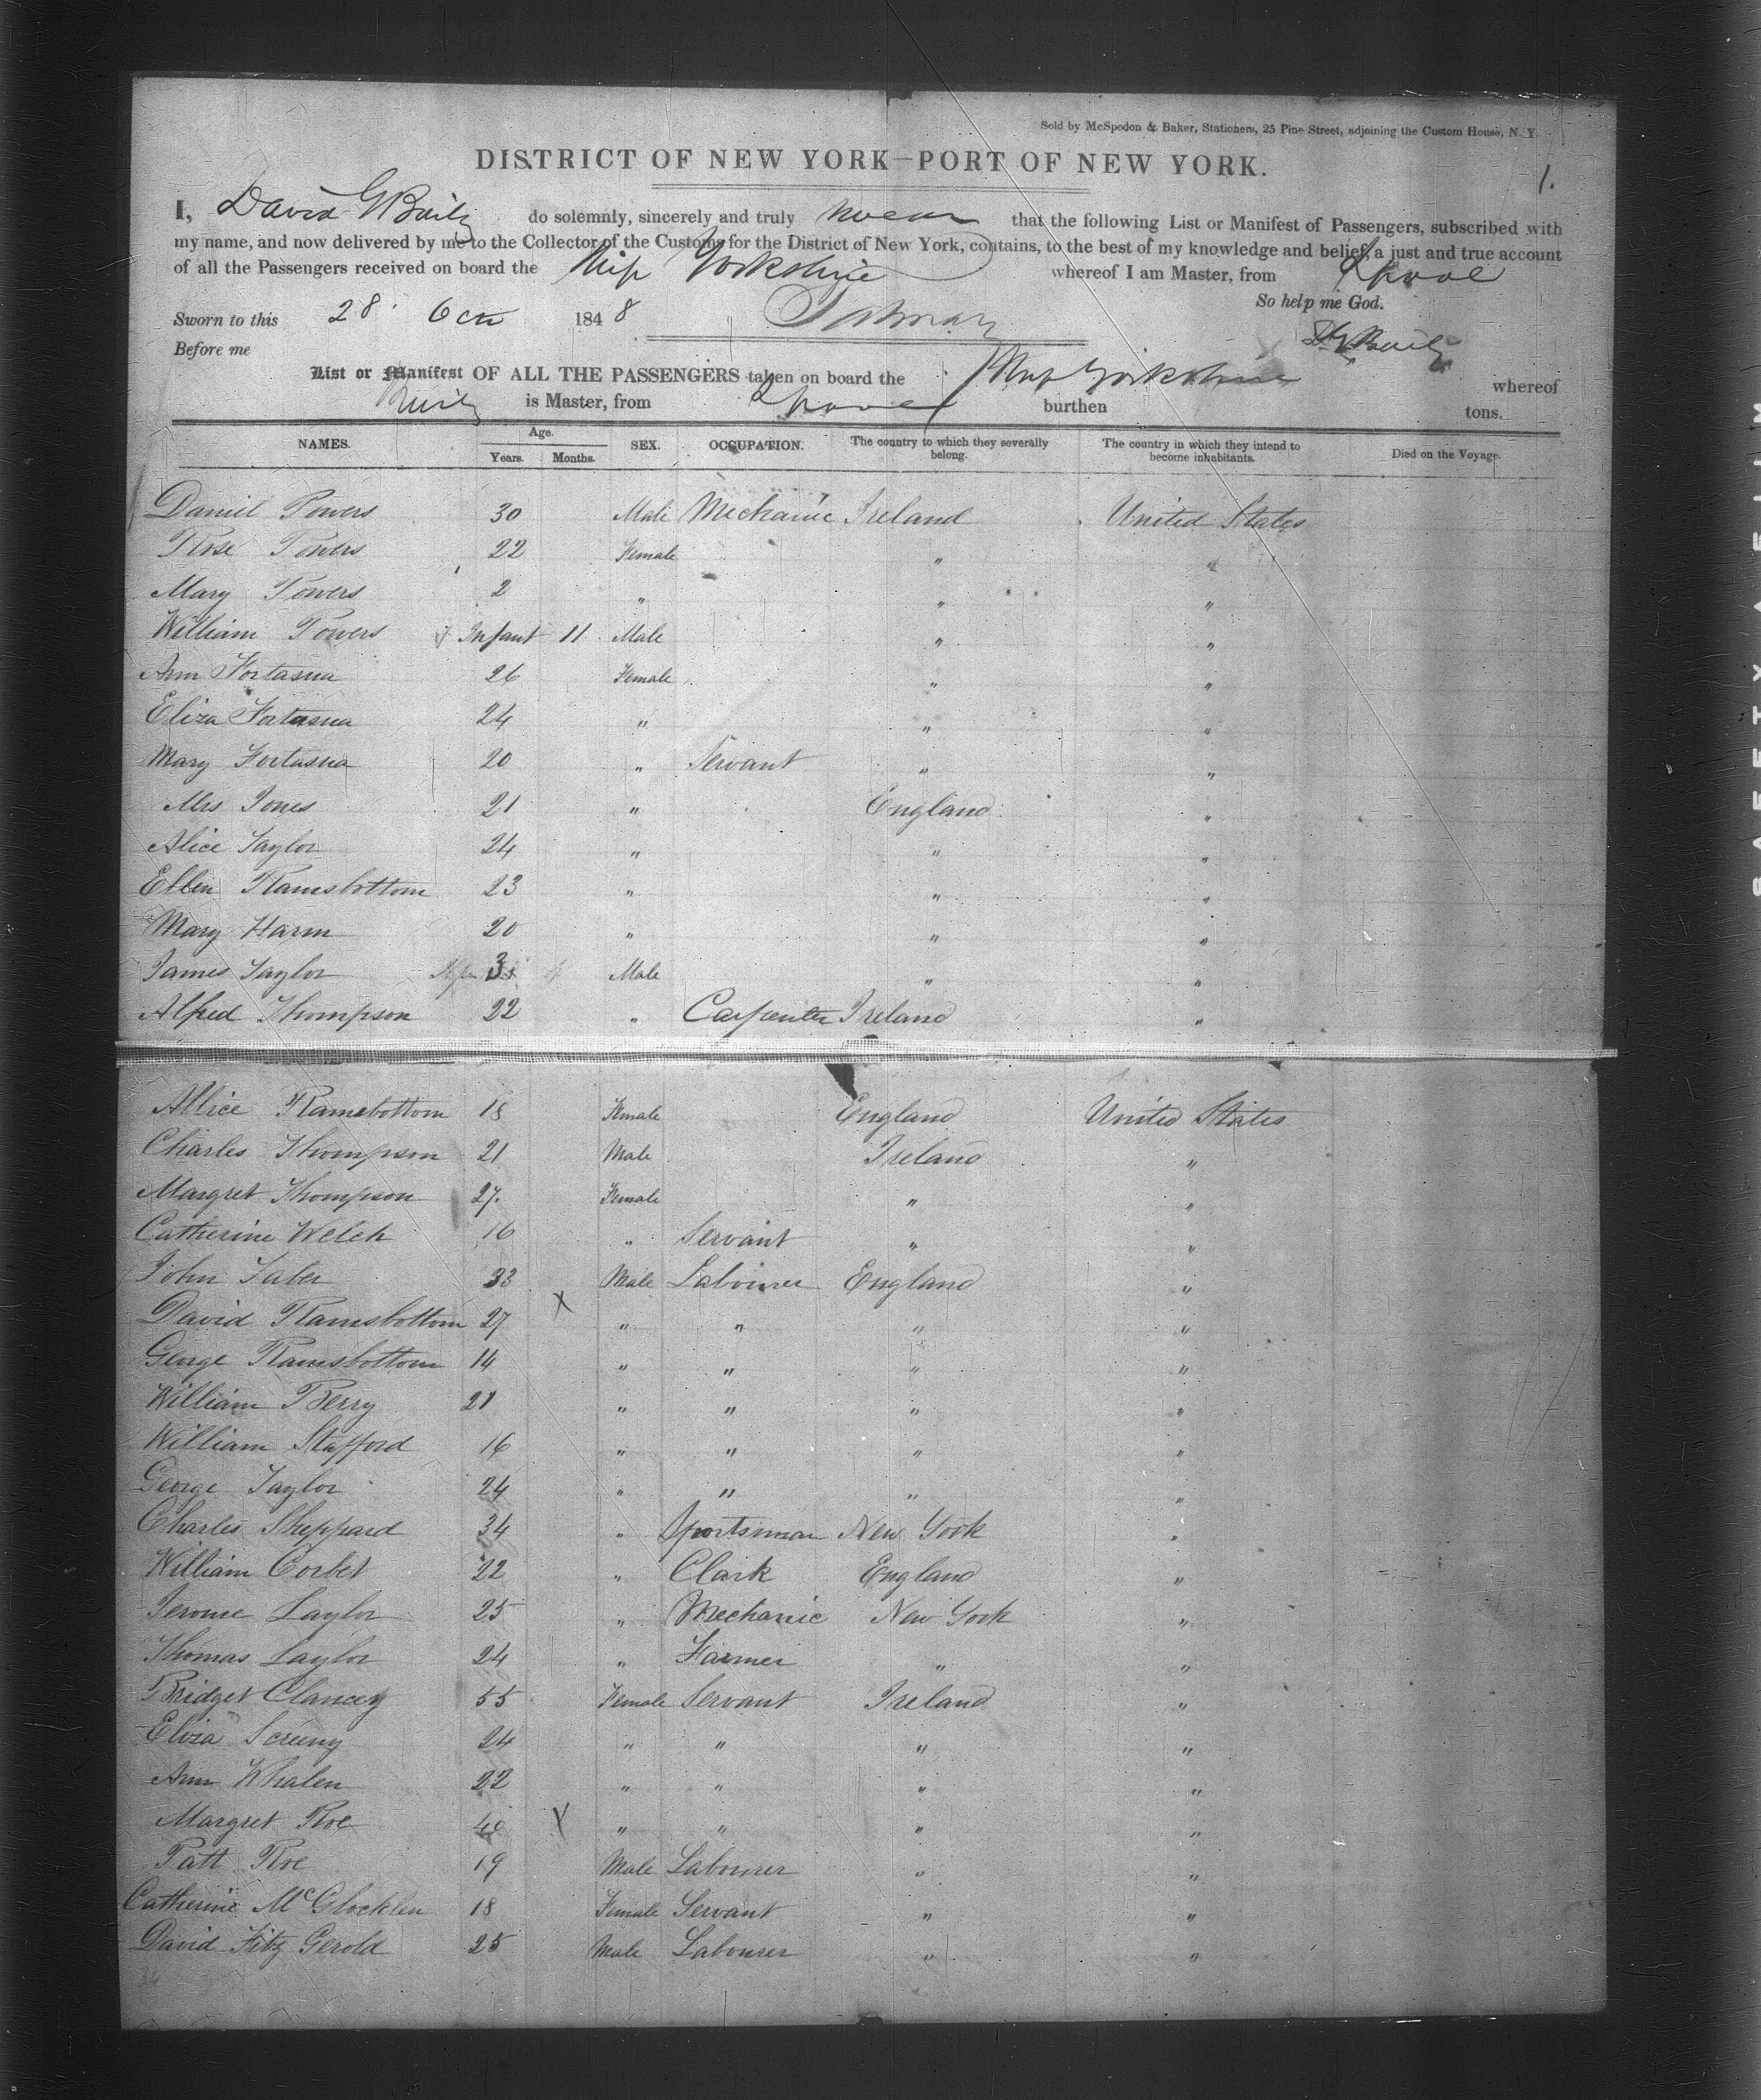 Sold by McSpedon & Baker, Stationers, 25 Pine Street, adjoining the Custom House, N. Y.
DISTRICT OF NEW YORK—PORT OF NEW YORK.
1.
I, David G Baily do solemnly, sincerely and truly swear that the following List or Manifest of Passengers, subscribed with
my name, and now delivered by me to the Collector of the Customs for the District of New York, contains, to the best of my knowledge and belief, a just and true account
of all the Passengers received on board the Ship Yorkshire whereof I am Master, from Lpool
So help me God.
Sworn to this 28 Oct 1848
D G Baily
Before me
List or Manifest OF ALL THE PASSENGERS taken on board the Ship Yorkshire whereof
Baily is Master, from Lpool burthen tons.
NAMES. Age. Years. Months. SEX. OCCUPATION. The country to which they severally belong. The country in which they intend to become inhabitants. Died on the Voyage.
Daniel Powers 30 Male Mechanic Ireland United States
Rose Powers 22 Female " "
Mary Powers 2 " " "
William Powers Infant 11 Male " "
Ann Fortasua 26 Female " "
Eliza Fortasua 24 " " "
Mary Fortasua 20 " Servant " "
Mrs Jones 21 " England "
Alice Taylor 24 " " "
Ellen Ramsbottom 23 " " "
Mary Harm 20 " " "
James Taylor 3 Male " "
Alfred Thompson 22 " Carpenter Ireland "
Allice Ramsbottom 18 Female England United States
Charles Thompson 21 Male Ireland "
Margret Thompson 27. Female " "
Catherine Welch 16 " Servant " "
John Taber 33 Male Labourer England "
David Ramsbottom 27 X " " " "
George Ramsbottom 14 " " " "
William Berry 21 " " " "
William Stafford 16 " " " "
George Taylor 24 " " " "
Charles Sheppard 34 " Sportsman New York "
William Corbet 22 " Clark England "
Jerome Laylor 25 " Mechanic New York "
Thomas Laylor 24 " Farmer " "
Bridget Clancey 55 Female Servant Ireland "
Eliza Screeny 24 " " " "
Ann Whalen 22 " " " "
Margret Roe 40 X " " " "
Patt Roe 19 Male Labourer " "
Catherine McGlocklen 18 Female Servant " "
David Fitz Gerold 25 Male Labourer " "
34